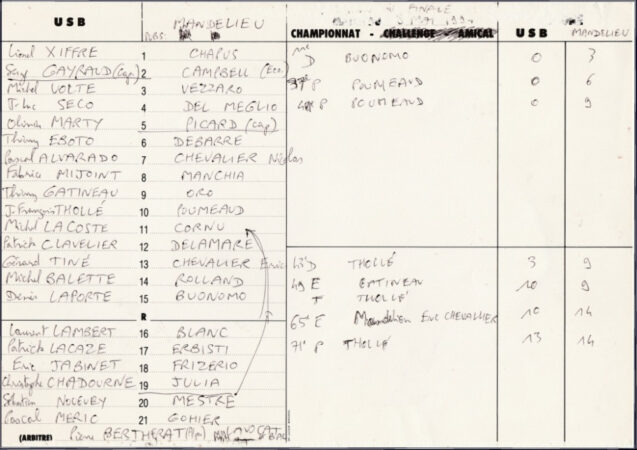 USB MANDELIEU
Lionel XIFFRE 1 CHAPUS
GAYRAUD (Cap) 2 CAMPBELL (Ecc)
Michel VOLTE 3 VEZZARO
J. Luc SECO 4 DEL MEGLIO
Olivier MARTY 5 PICARD (Cap)
Thierry EBOTO 6 DEBARRE
Pascal ALVARADO 7 CHEVALIER Nicolas
Fabrice MIJOINT 8 MANCHIA
Thierry GATINEAU 9 ORO
J. François THOLLÉ 10 POUMEAUD
Michel LACOSTE 11 CORNU
Patrick CLAVELIER 12 DELAMARE
Gérard TINÉ 13 CHEVALIER Eric
Michel BALETTE 14 ROLLAND
Denis LAPORTE 15 BUONOMO
R
Laurent LAMBERT 16 BLANC
Patrick LACAZE 17 ERBISTI
Eric JABINET 18 FRIZERIO
Christophe CHADOURNE 19 JULIA
Sébastien 20 MESTRE
Pascal MERIC 21 GOHIER
(ARBITRE) Pierre BERTHERAT
FINALE
CHAMPIONNAT - CHALLENGE - AMICAL USB MANDELIEU
D BUONOMO 0 3
P POUMEAUD 0 6
P POUMEAUD 0 9
43' D THOLLÉ 3 9
49 E GATINEAU 10 9
T THOLLÉ
65' E Mandelieu Eric CHEVALLIER 10 14
71' P THOLLÉ 13 14